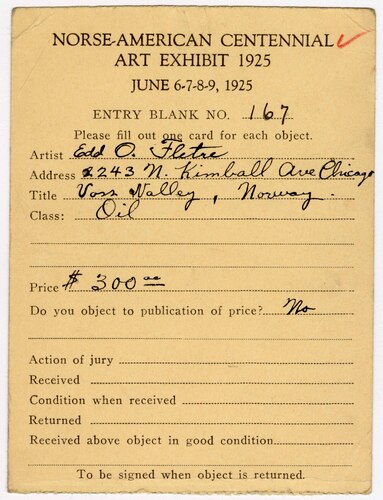 NORSE-AMERICAN CENTENNIAL
ART EXHIBIT 1925
JUNE 6-7-8-9, 1925
ENTRY BLANK NO. 167
Please fill out one card for each object.
Artist Edd O. Fletre
Address 2243 N. Kimball Ave Chicago
Title Voss Valley, Norway.
Class: Oil
Price $300 00
Do you object to publication of price? No
Action of jury
Received
Condition when received
Returned
Received above object in good condition
To be signed when object is returned.